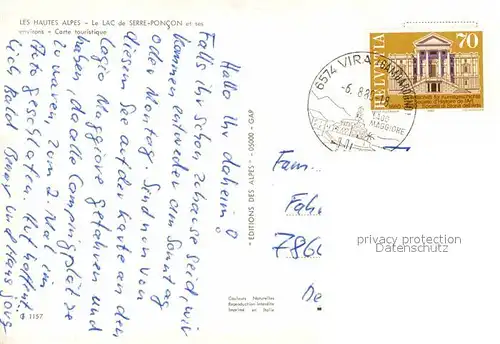 LES HAUTES ALPES - Le LAC de SERRE-PONÇON et ses
environs - Carte touristique
Hallo Ihr daheim!
Falls ihr schon zuhause seid, wir
kommen entweder am Sonntag
oder Montag. Sind nun von
diesem See auf der Karte an den
Lago Maggiore gefahren und
haben, da alle Campingplätze
zu waren, zum 2. Mal im
Auto geschlafen. Auf hoffent-
lich bald Benny und Hans Jörg
"EDITIONS DES ALPES" - 05000 - GAP
Couleurs Naturelles
Reproduction Interdite
Imprimé en Italie
1157
6574 VIRA (GAMBAROGNO)
-6. 8. 80
LAGO MAGGIORE
HELVETIA
70
Fam.
786
privacy protection
watermark